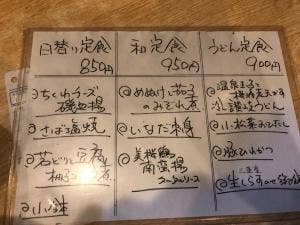 日替り定食
850円
◎ちくわチーズ
磯辺揚
◎さば塩焼
◎若どりと豆腐
柚子煮
◎小鉢
和定食
950円
◎めぬけと茄子
のみぞれ煮
◎いなだ刺身
◎美桜鶏
南蛮揚
タルタルソース
うどん定食
900円
◎温泉玉子と
冷し讃岐うどん
◎小松菜おひたし
◎豚ひれかつ
◎生しらすの